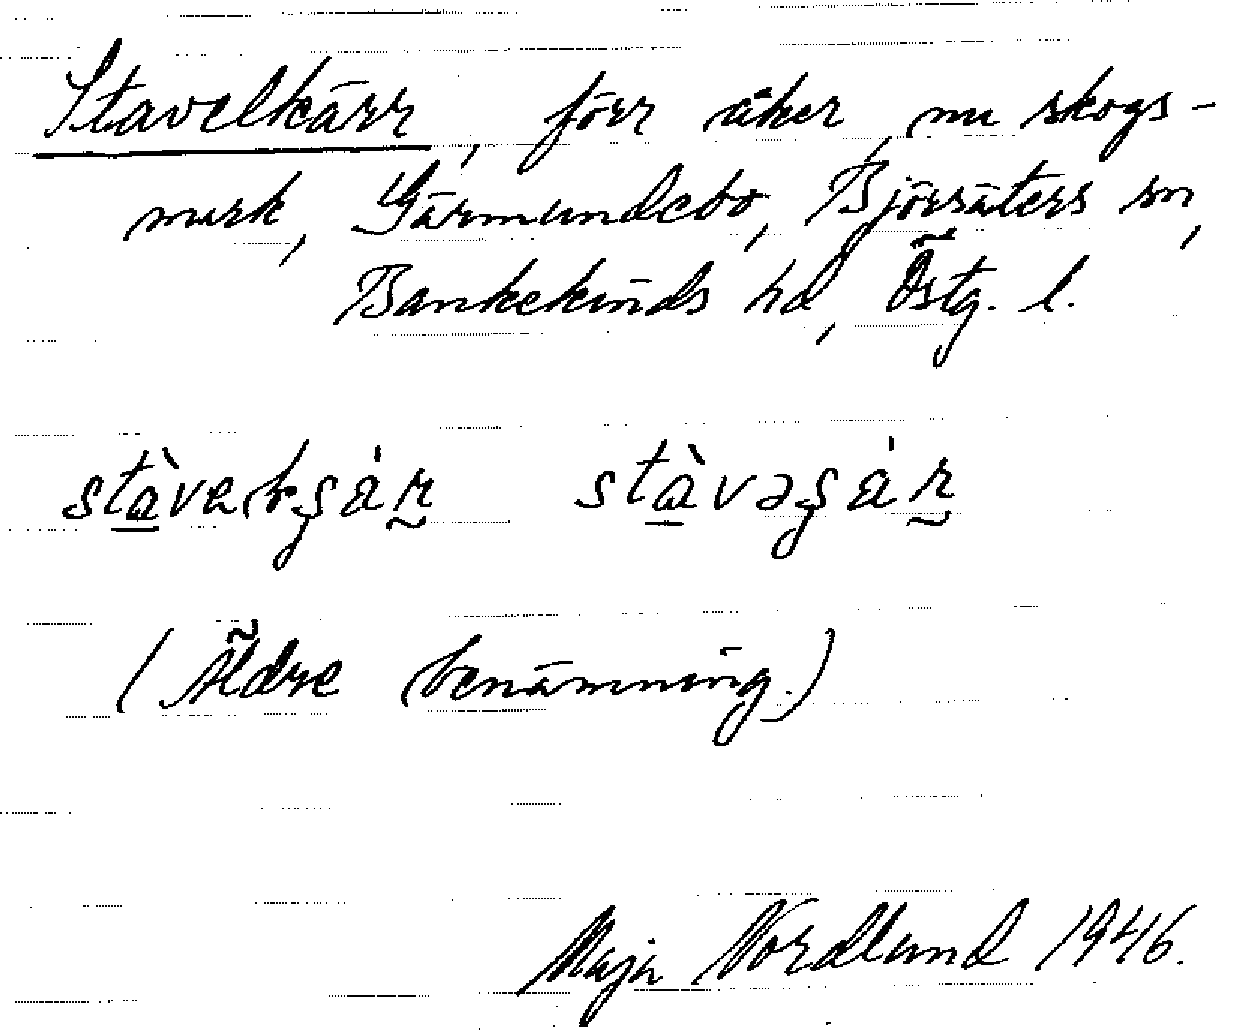 Stavelkärr, förr åker, nu skogs-
mark, Gärmundebo, Björsäters sn,
Bankekinds hd, Östg. l.
(Äldre benämning.)
Maja Nordlund 1946.